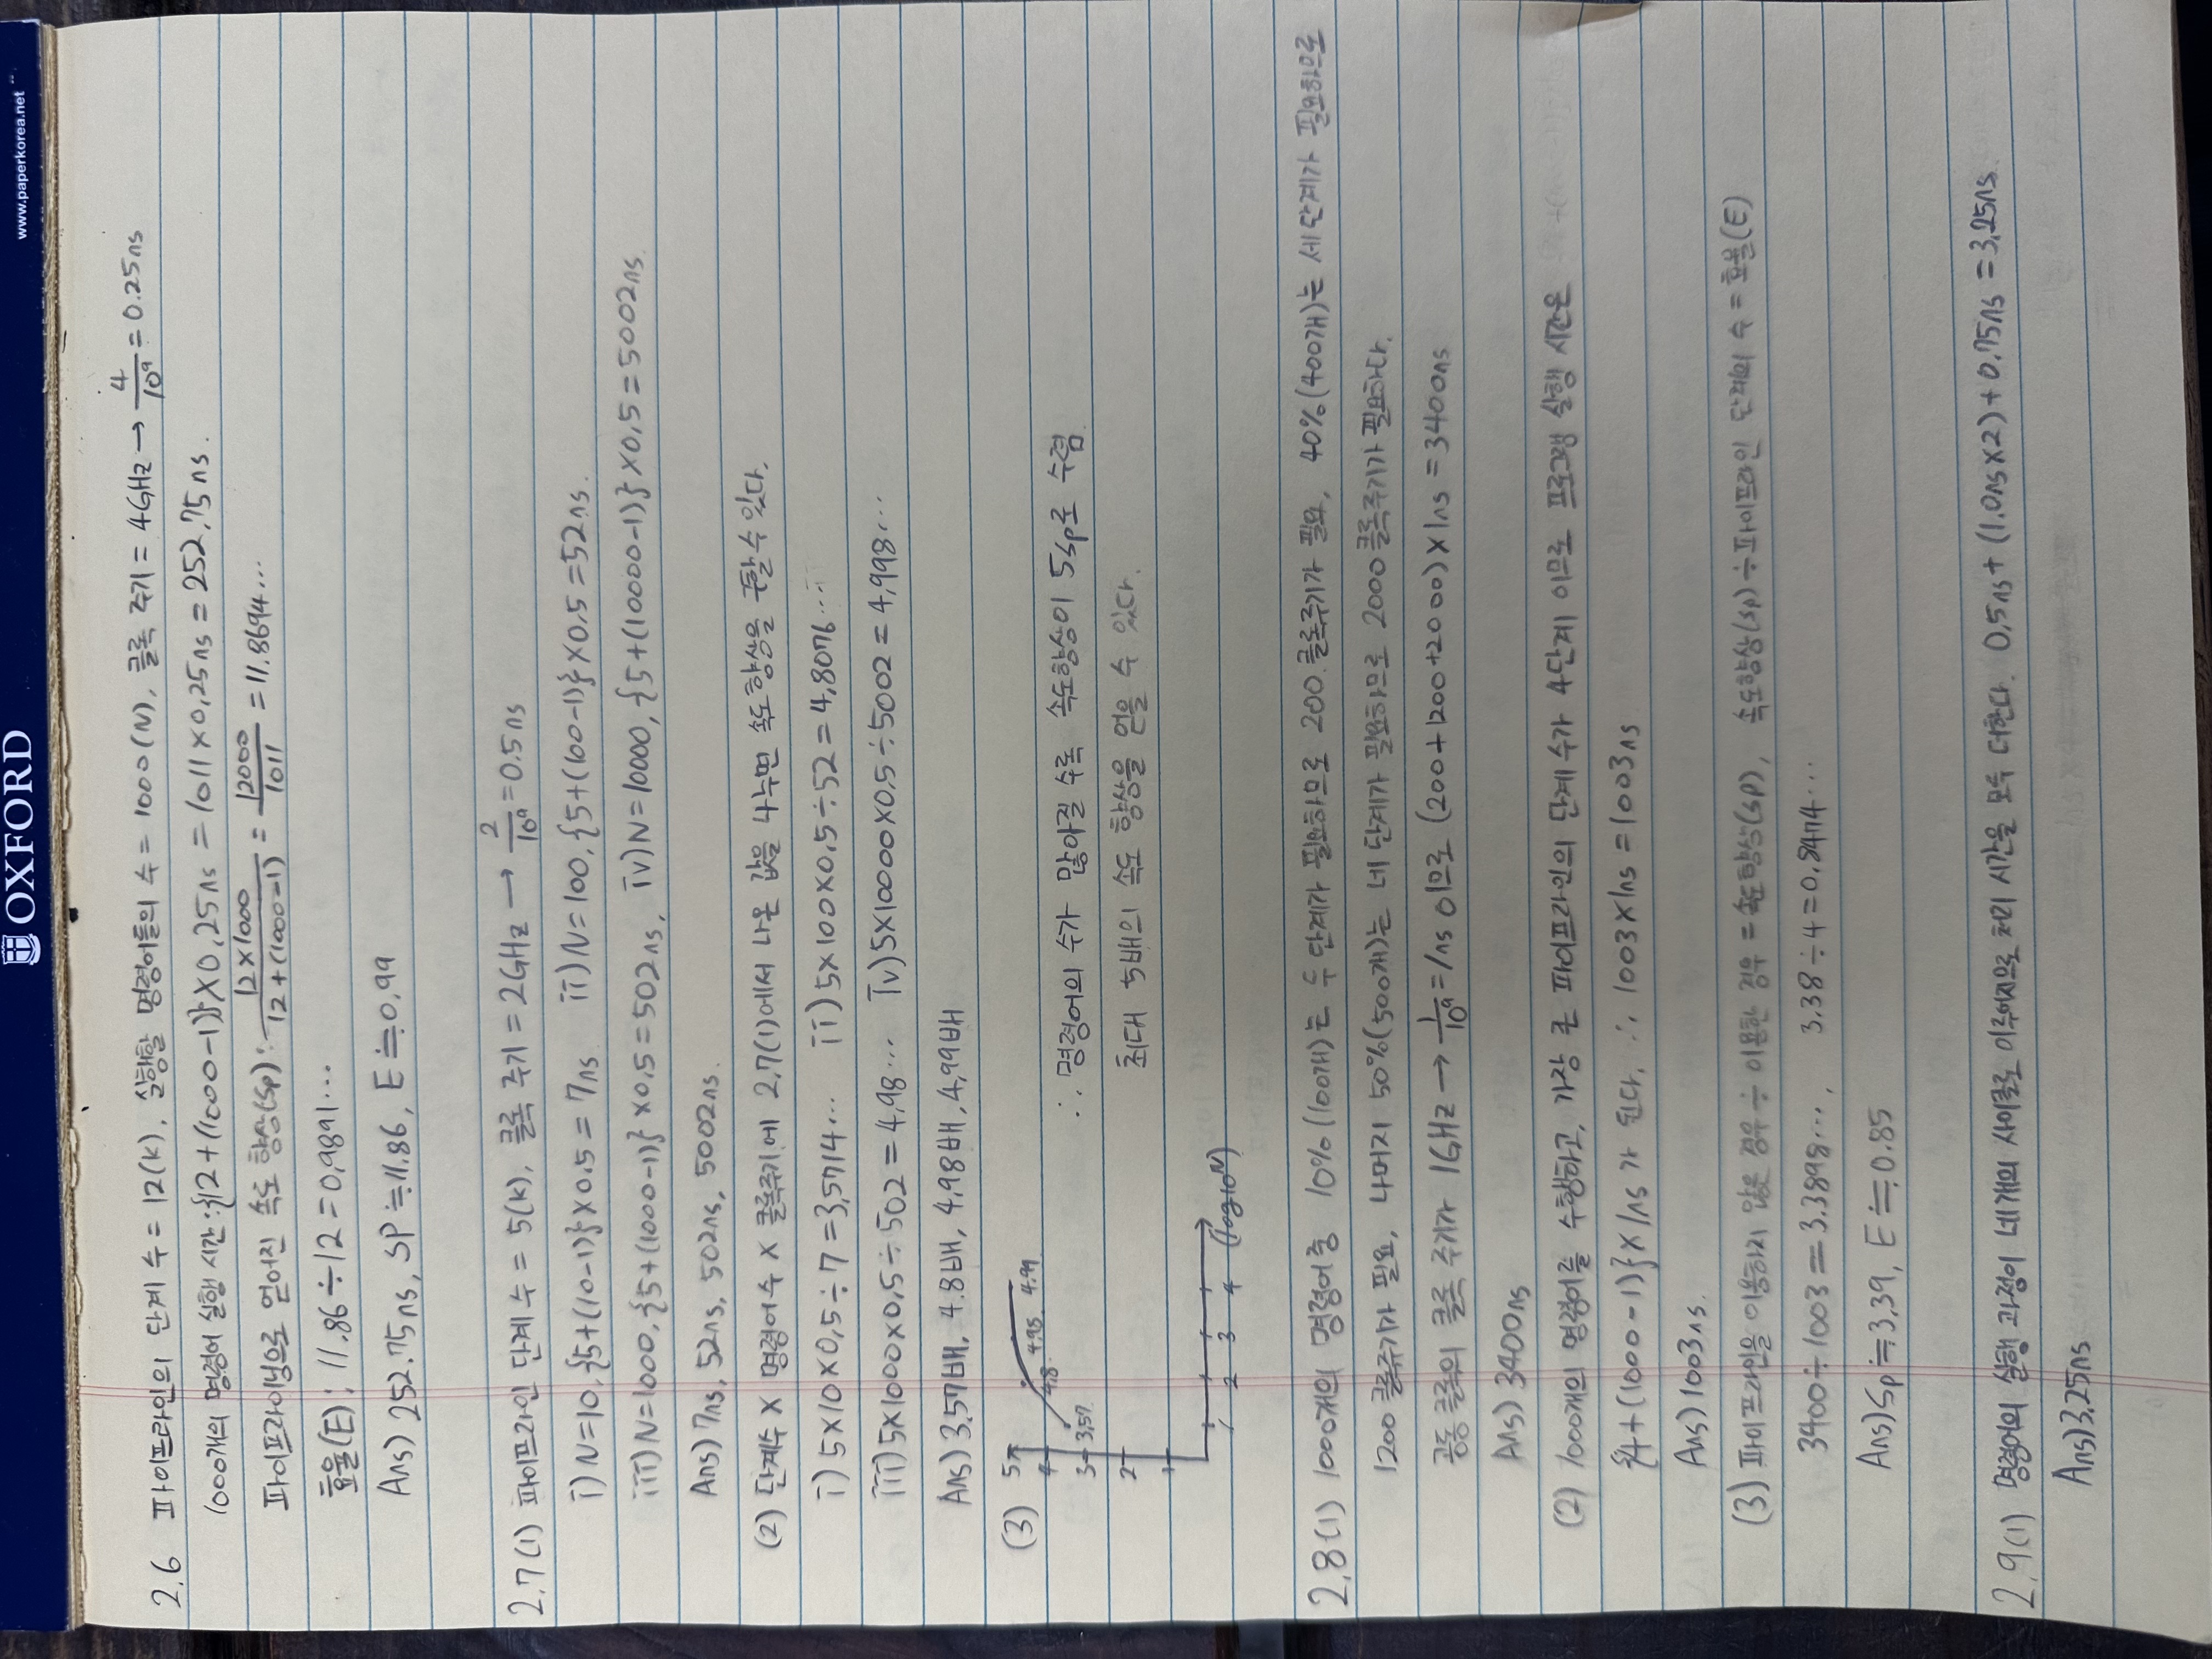 OXFORD
www.paperkorea.net
2.6 파이프라인의 단계 수 = 12(K), 실행할 명령어들의 수 = 1000(N), 클록 주기 = 4GHz → 4/10⁹ = 0.25ns
1000개의 명령어 실행 시간 : {12+(1000-1)}×0.25ns = 1011×0.25ns = 252.75ns.
파이프라이닝으로 얻어진 속도 향상(Sp) : 12×1000/12+(1000-1) = 12000/1011 = 11.8694…
효율(E) : 11.86÷12=0.9891…
Ans) 252.75ns, SP≒11.86, E≒0.99
2.7(1) 파이프라인 단계 수 = 5(K), 클록 주기 = 2GHz → 2/10⁹=0.5ns
i) N=10, {5+(10-1)}×0.5 = 7ns ii) N=100, {5+(100-1)}×0.5=52ns.
iii) N=1000, {5+(1000-1)}×0.5=502ns, iv) N=10000, {5+(10000-1)}×0.5=5002ns.
Ans) 7ns, 52ns, 502ns, 5002ns.
(2) 단계수 × 명령어 수 × 클록주기에 2.7(1)에서 나온 값을 나누면 속도향상을 구할 수 있다.
i) 5×10×0.5÷7=3.5714… ii) 5×100×0.5÷52=4.8076…
iii) 5×1000×0.5÷502=4.98… iv) 5×10000×0.5÷5002=4.998…
Ans) 3.57배, 4.8배, 4.98배, 4.99배
(3) 5
4.98 4.99
4 4.8
3 3.57
∴ 명령어의 수가 많아질 수록 속도향상이 5Sp로 수렴
2
최대 5배의 속도 향상을 얻을 수 있다.
1
1 2 3 4 (log10ᴺ)
2.8(1) 1000개의 명령어중 10%(100개)는 두 단계가 필요하므로 200 클록주기가 필요, 40%(400개)는 세단계가 필요하므로
1200 클록주기가 필요, 나머지 50%(500개)는 네 단계가 필요하므로 2000 클록주기가 필요하다.
공동 클록의 클록 주기가 1GHz → 1/10⁹=1ns 이므로 (200+1200+2000)×1ns=3400ns
Ans) 3400ns
(2) 1000개의 명령어를 수행하고, 가장 큰 파이프라인의 단계 수가 4단계 이므로 프로그램 실행 시간은
{4+(1000-1)}×1ns가 된다. ∴ 1003×1ns=1003ns
Ans) 1003ns.
(3) 파이프라인을 이용하지 않은 경우 ÷ 이용한 경우 = 속도향상(Sp), 속도향상(Sp)÷파이프라인 단계의 수 = 효율(E)
3400÷1003=3.3898…, 3.38÷4=0.8474…
Ans) Sp≒3.39, E≒0.85
2.9(1) 명령어의 실행 과정이 네개의 사이클로 이루어지므로 처리 시간을 모두 더한다. 0.5ns+(1.0ns×2)+0.75ns=3.25ns.
Ans) 3.25ns